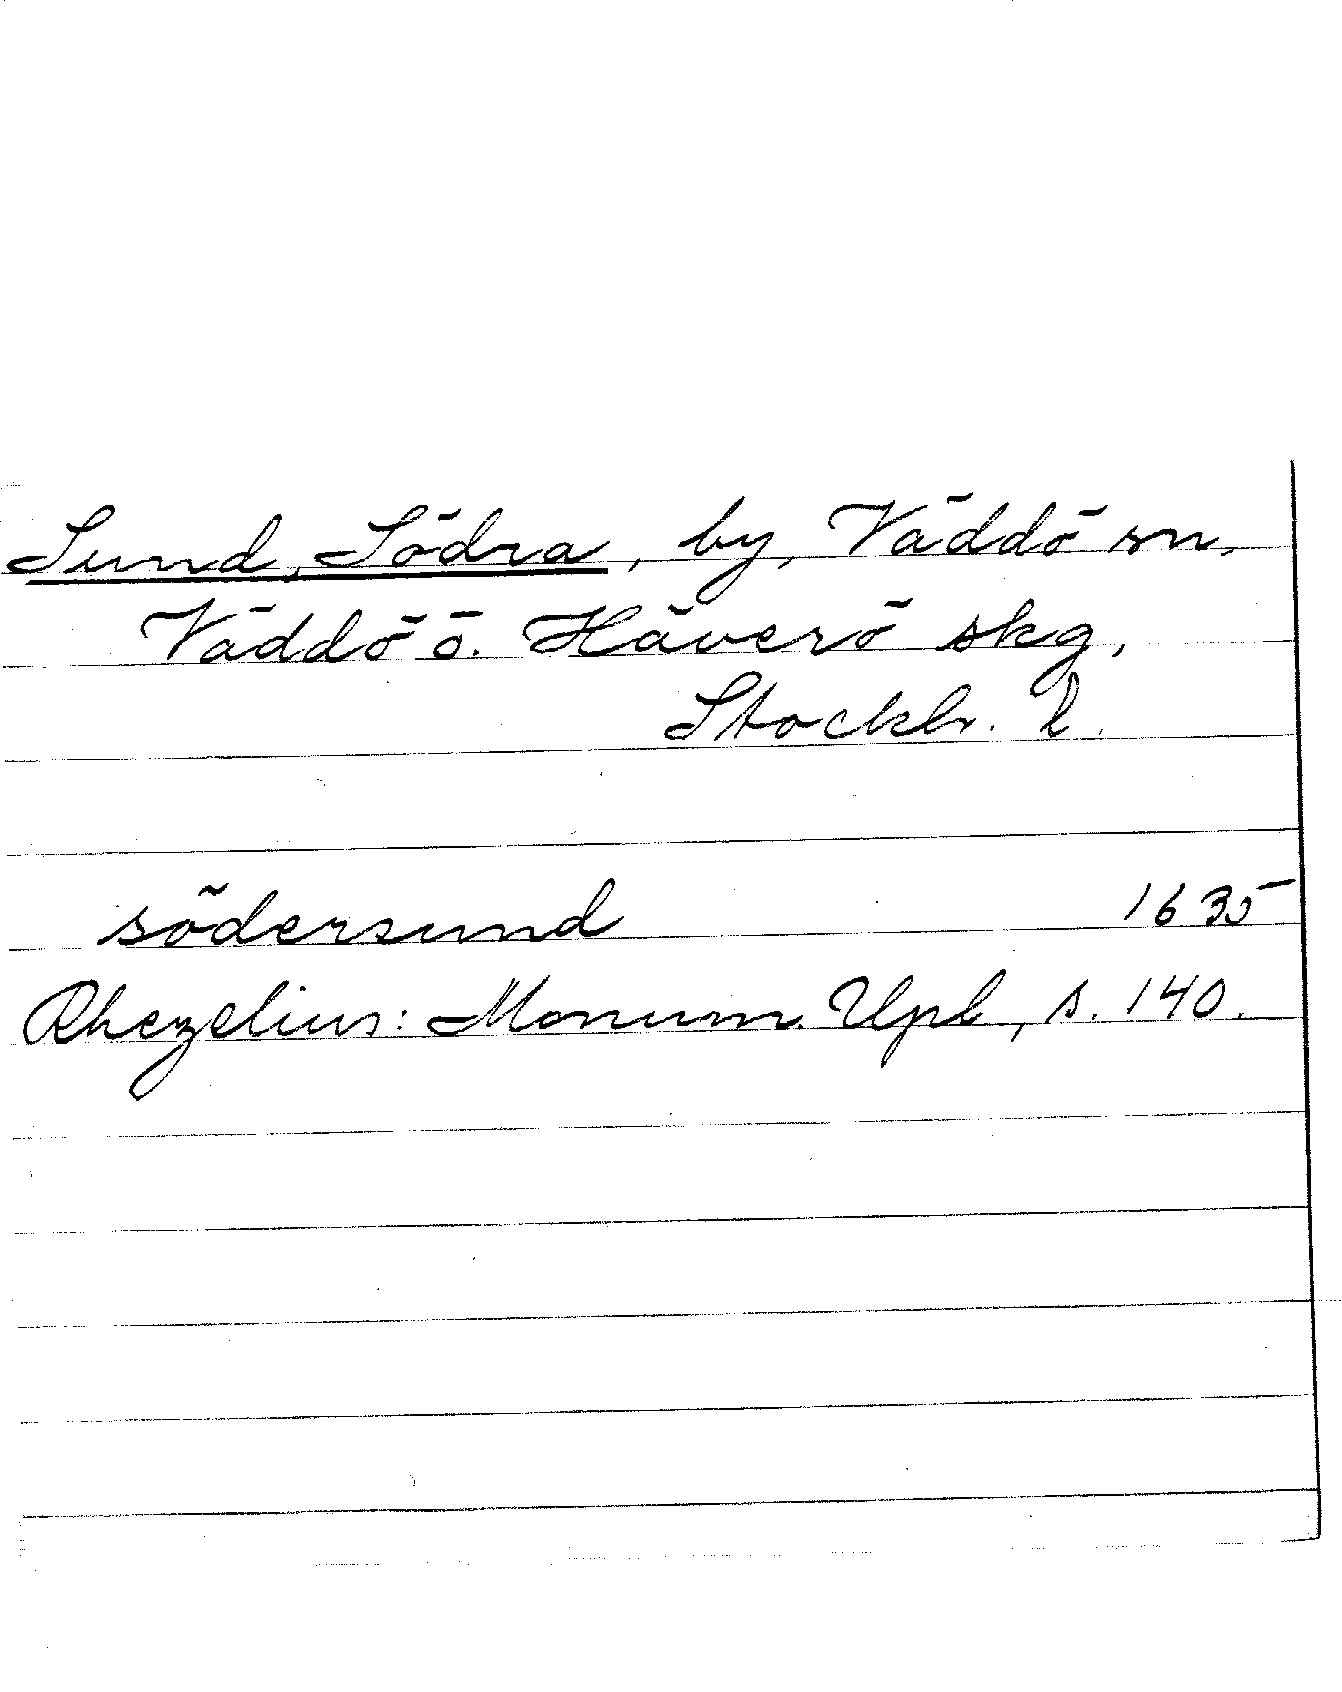 Sund, Södra, by, Väddö sn,
Väddö o. Häverö skg,
Stockh. l.
södersund 1635
Rhezelius: Monum. Upl, s. 140.